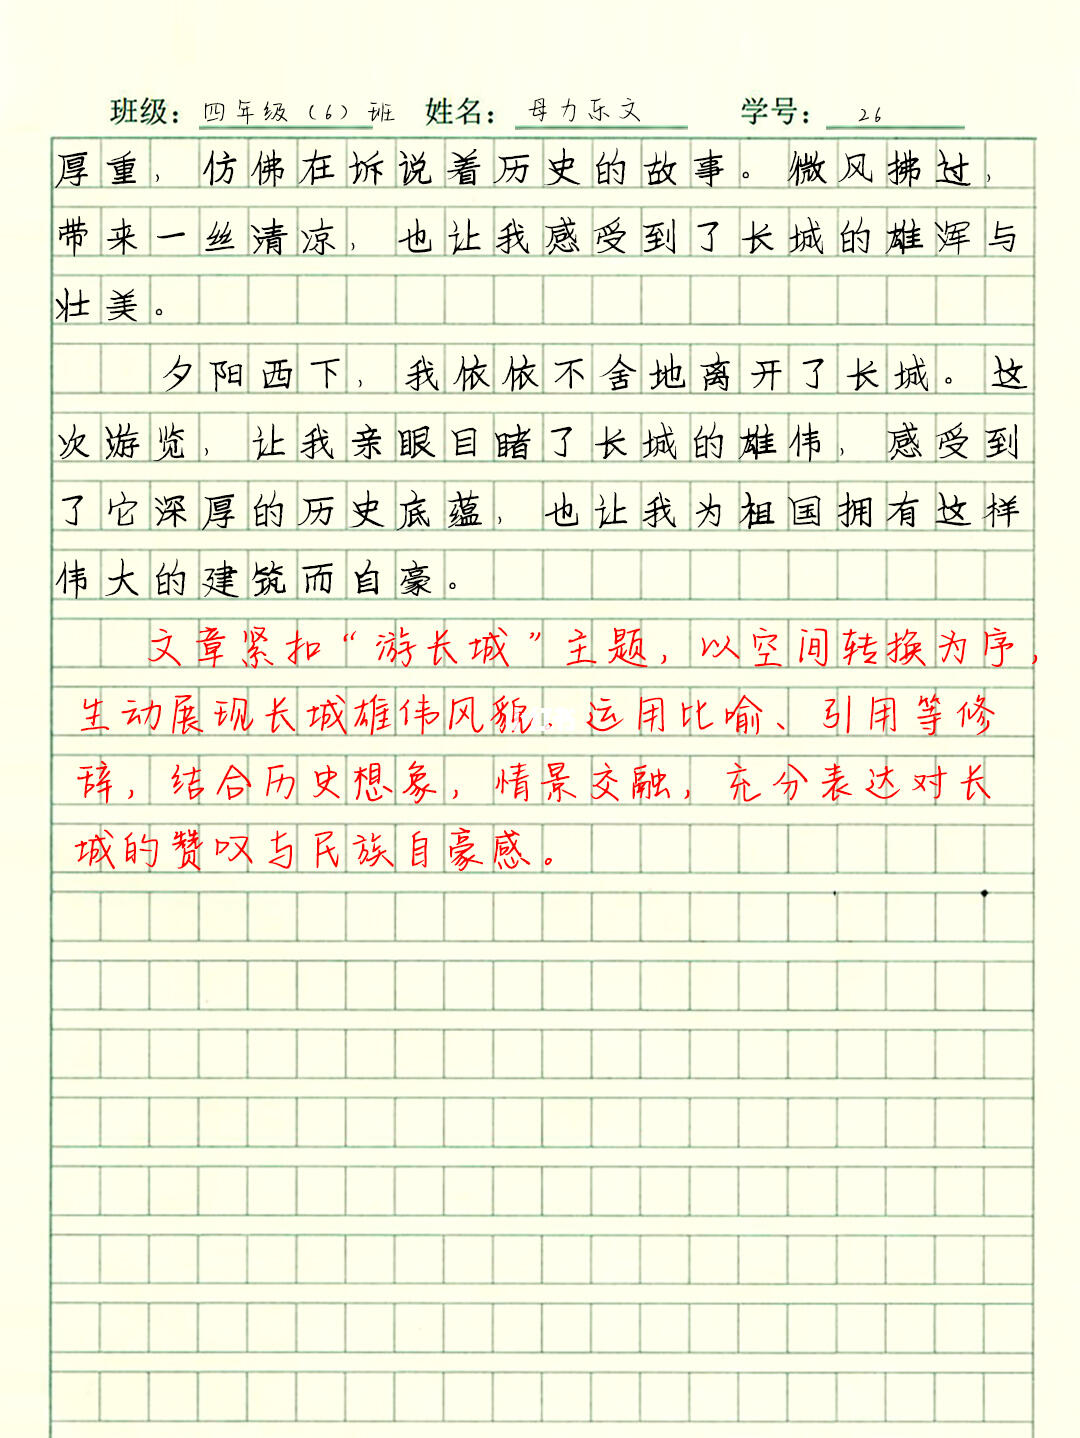 班级：四年级（6）班 姓名：母力乐文 学号：26
厚重，仿佛在诉说着历史的故事。微风拂过，
带来一丝清凉，也让我感受到了长城的雄浑与
壮美。
夕阳西下，我依依不舍地离开了长城。这
次游览，让我亲眼目睹了长城的雄伟，感受到
了它深厚的历史底蕴，也让我为祖国拥有这样
伟大的建筑而自豪。
文章紧扣“游长城”主题，以空间转换为序，
生动展现长城雄伟风貌，运用比喻、引用等修
辞，结合历史想象，情景交融，充分表达对长
城的赞叹与民族自豪感。